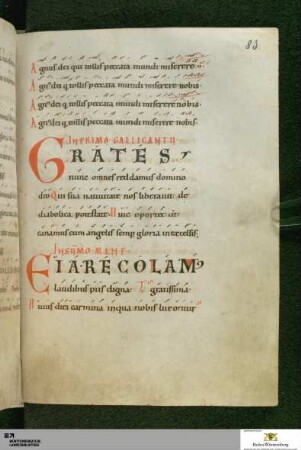 83
Agnus dei qui tollis peccata mundi miserere
Agn' dei q tollis peccata mundi miserere nobis
Agn' dei q tollis peccata mundi miserere nobis
Agn' dei q tollis peccata mundi miserere nobis
IN PRIMO GALLICANTU
GRATES
nunc omnes reddamus domino
deo Qui sua nativitate nos liberavit de
diabolica potestate Huic oportet ut
canamus cum angelis semp gloria in excelsis
EIA RECOLAM
laudibus piis digna gratissima
nius diei carmina in qua nobis lux oritur
Baden-Württemberg